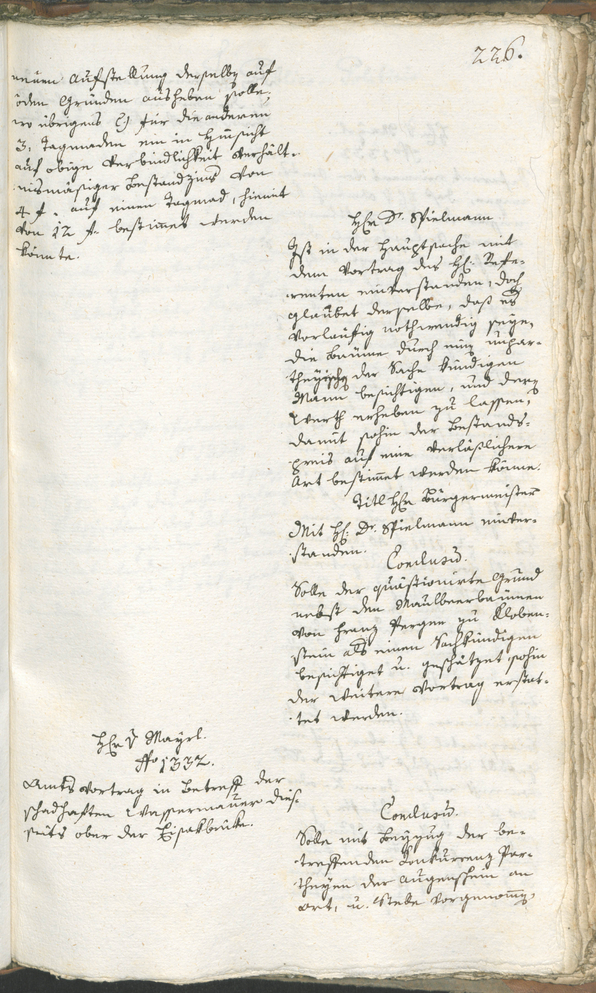 226.
neuen Aufstellung derselben auf
öden Gründen ausheben solle,
wo übrigens C) für die anderen
3. Tagmaden ein in Hinsicht
auf obige Verbindlichkeit verhält-
nismäsiger Bestandzins von
4 f. auf einen Tagmad, hiemit
von 12 f. bestimmt werden
könnte.
Hr. Dr. Spielmann.
Ist in der Hauptsache mit
dem Vortrag des H: Refe-
renten einverstanden; doch
glaubet derselbe, daß es
vorläufig nothwendig seyn,
die Bäume durch einen unpar-
theyischen der Sache kündigen
Mann besichtigen, und deren
Werth erheben zu lassen,
damit sohin der Bestands-
preis auf eine verläßlichere
Art bestimmt werden könne.
Titl Hr Bürgermeister
Mit H: Dr. Spielmann einver-
standen.
Conclusum.
Solle der quästionirte Grund
nebst den Maulbeerbäumen
von Franz Perger zu Kloben-
stein als einen Sachkündigen
besichtiget u. geschätzet sohin
der weitere Vortrag erstat-
tet werden.
Hr Mayrl.
No 1332.
Amtsvortrag in Betreff der
schadhaften Wassermauer dies-
seits ober der Eisakbrücke.
Conclusum.
Solle mit Beyzug der be-
treffenden Konkurrenz Par-
theyen der Augenschein an
Ort, u. Stelle vorgenommen